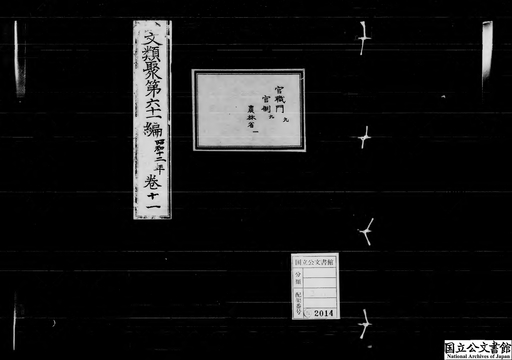 文類聚第六十一編 昭和十二年 卷十一
官職門 九
官制 九
農林省 一
国立公文書館
分類
配架番号
2014
国立公文書館
National Archives of Japan